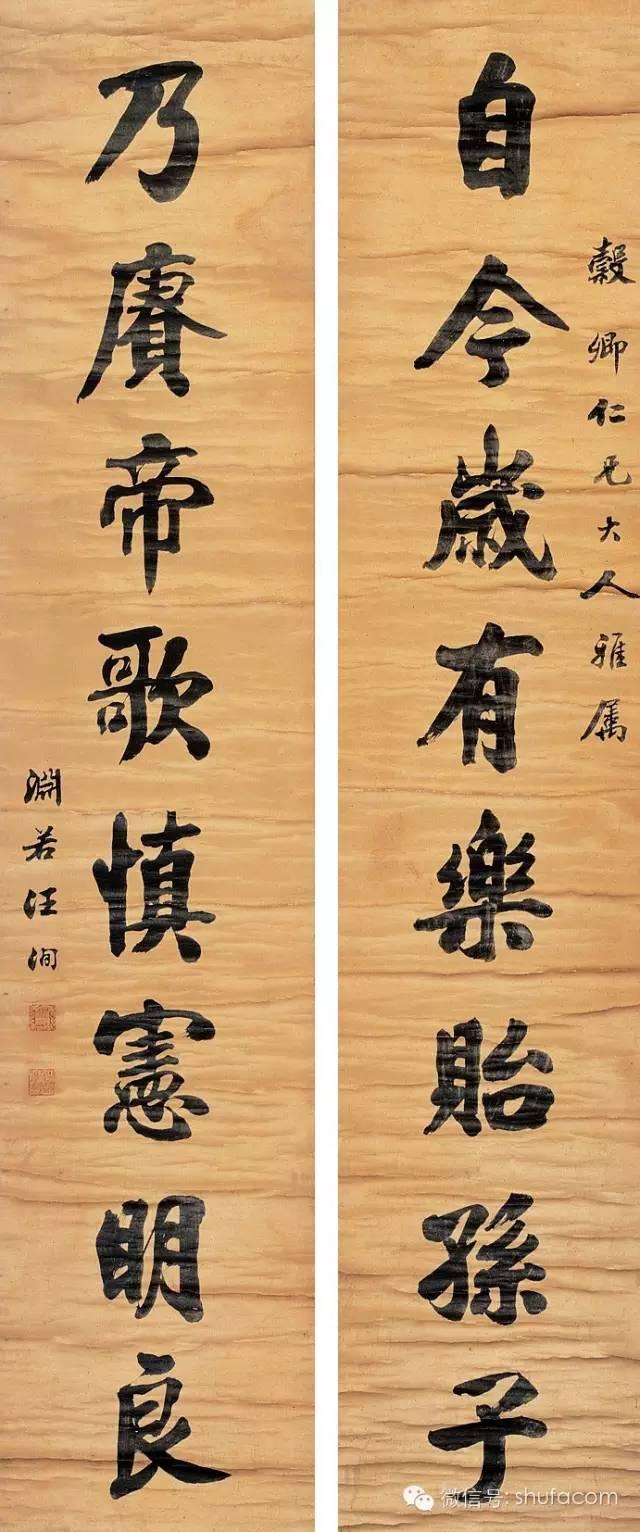 穀卿仁兄大人雅属
自今歲有樂貽孫子
乃賡帝歌慎憲明良
淵若汪洵
微信号: shufacom